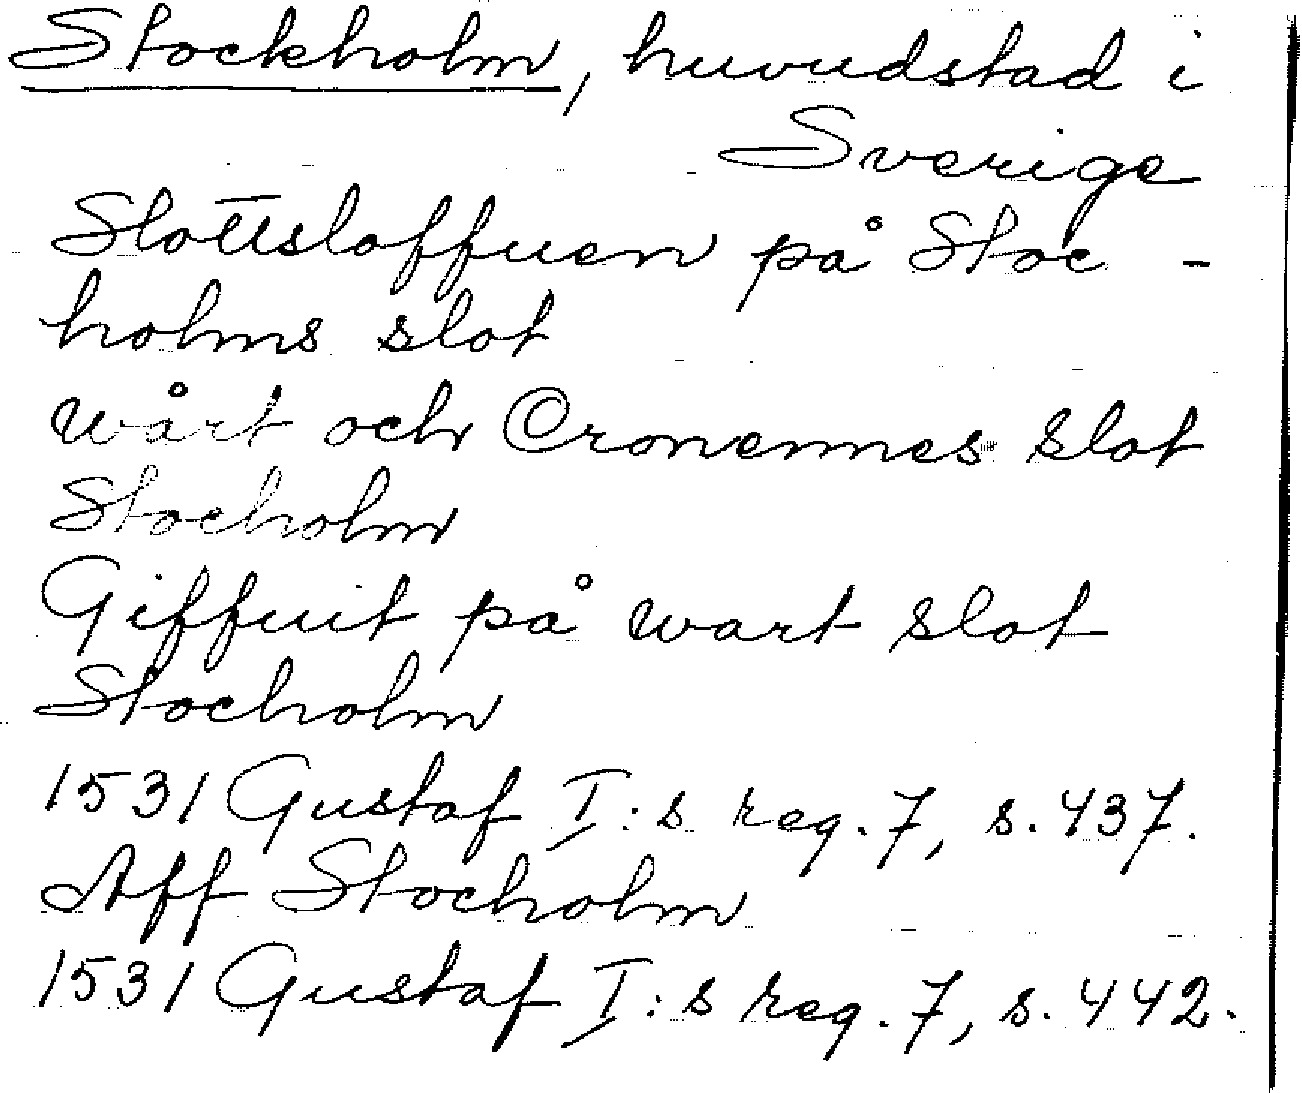 Stockholm, huvudstad i
Sverige
Slottsloffuen på Stoc-
holms slot
wårt och Cronennes slot
Stocholm
Giffuit på wart slot
Stocholm
1531 Gustaf I:s reg. 7, s. 437.
Aff Stocholm
1531 Gustaf I:s reg. 7, s. 442.